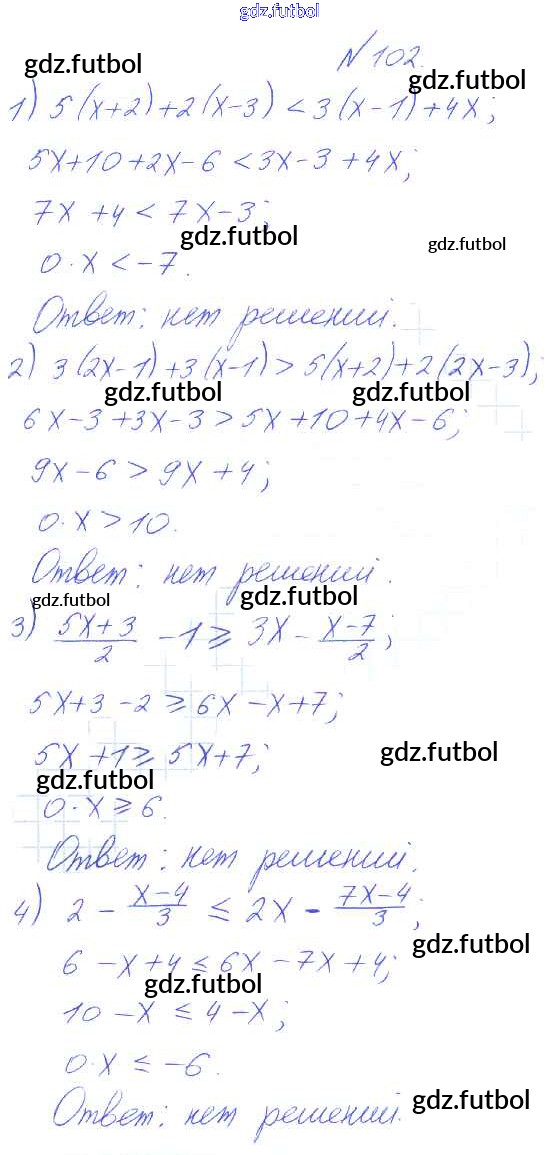 gdz.futbol
N 102.
gdz.futbol
gdz.futbol
1) 5(x+2)+2(x-3) < 3(x-1)+4x;
5x+10+2x-6 < 3x-3+4x;
7x+4 < 7x-3;
gdz.futbol
gdz.futbol
0·x < -7.
Ответ: нет решений.
2) 3(2x-1)+3(x-1) > 5(x+2)+2(2x-3);
gdz.futbol gdz.futbol
6x-3+3x-3 > 5x+10+4x-6;
9x-6 > 9x+4;
0·x > 10.
Ответ: нет решений.
gdz.futbol gdz.futbol
3) (5x+3)/2 - 1 ⩾ 3x - (x-7)/2;
5x+3-2 ⩾ 6x-x+7;
5x+1 ⩾ 5x+7;
gdz.futbol
gdz.futbol
0·x ⩾ 6.
Ответ: нет решений.
4) 2 - (x-4)/3 ≤ 2x - (7x-4)/3;
gdz.futbol
6-x+4 ≤ 6x-7x+4;
gdz.futbol
10-x ≤ 4-x;
0·x ≤ -6.
Ответ: нет решений.
gdz.futbol